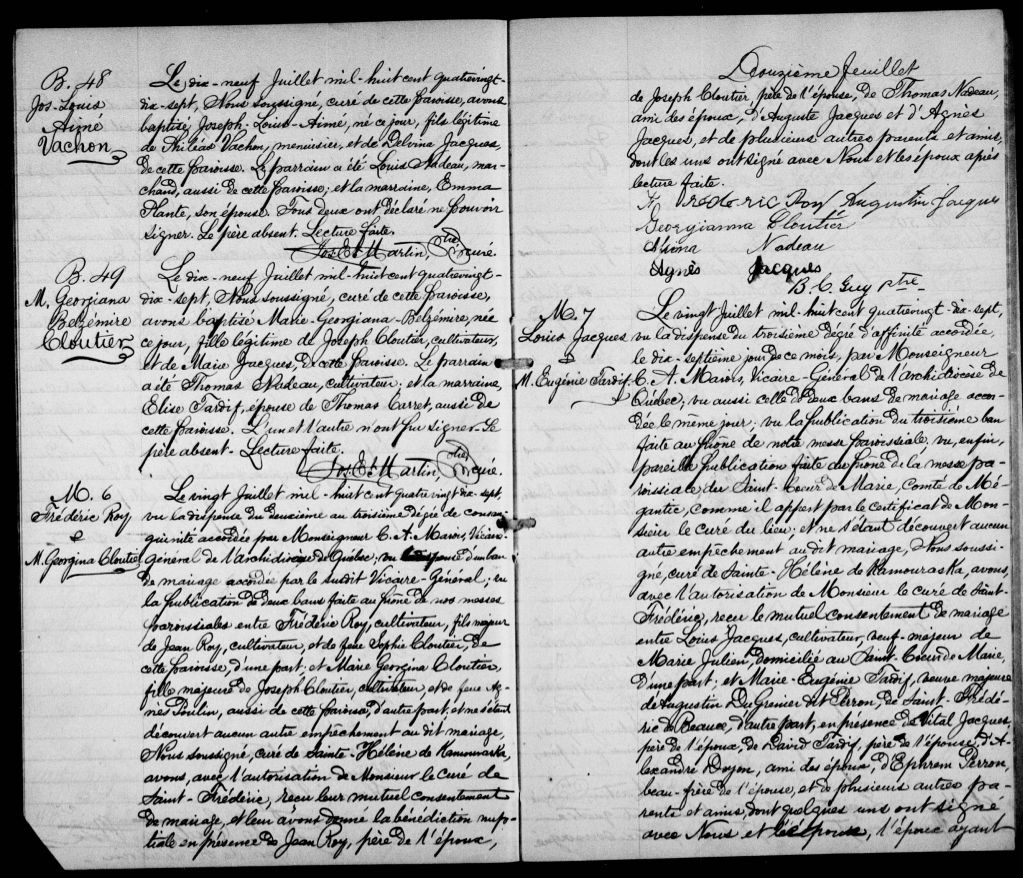 B. 48
Jos-Louis
Aimé
Vachon
Le dix-neuf Juillet mil-huit cent quatrevingt-
dix-sept, Nous soussigné, curé de cette paroisse, avons
baptisé Joseph-Louis-Aimé, né ce jour, fils légitime
de Philéas Vachon, menuisier, et de Delvina Jacques,
de cette paroisse. Le parrain a été Louis Nadeau, mar-
chand, aussi de cette paroisse; et la marraine, Emma
Plante, son épouse. Tous deux ont déclaré ne pouvoir
signer. Le père absent. Lecture faite.
Jos Et Martin, Ptre Curé.
B. 49
M. Georgiana
Belzémire
Cloutier
Le dix-neuf Juillet mil huit cent quatrevingt-
dix-sept, Nous soussigné, curé de cette paroisse,
avons baptisé Marie-Georgiana-Belzémire, née
ce jour, fille légitime de Joseph Cloutier, cultivateur,
et de Marie Jacques, de cette paroisse. Le parrain
a été Thomas Nadeau, cultivateur; et la marraine,
Elise Tardif, épouse de Thomas Carret, aussi de
cette paroisse. L'un et l'autre n'ont pu signer. Le
père absent. Lecture faite.
Jos Et Martin, Ptre Curé.
M. 6
Frédéric Roy
&
M. Georgina Cloutier
Le vingt Juillet mil-huit cent quatrevingt dix-sept,
vu la dispense du deuxième au troisième dégré de consan-
guinité accordée par Monseigneur C. A. Marois, Vicaire-
Général de l'archidiocèse de Québec; vu dispense d'un ban
de mariage accordée par le susdit Vicaire-Général; vu
la publication de deux bans faite au prône de nos messes
paroissiales entre Frédéric Roy, cultivateur, fils majeur
de Jean Roy, cultivateur, et de feue Sophie Cloutier, de
cette paroisse, d'une part; et Marie Georgina Cloutier,
fille majeure de Joseph Cloutier, cultivateur, et de feue Ag-
nès Poulin, aussi de cette paroisse, d'autre part; et ne s'étant
découvert aucun autre empêchement au dit mariage,
Nous soussigné, curé de Sainte-Hélène de Kamouraska,
avons, avec l'autorisation de Monsieur le curé de
Saint-Frédéric, reçu leur mutuel consentement
de mariage, et leur avons donné la bénédiction nup-
tiale en présence de Jean Roy, père de l'époux,
Douzième feuillet
de Joseph Cloutier, père de l'épouse, de Thomas Nadeau,
ami des époux, d'Auguste Jacques et d'Agnès
Jacques, et de plusieurs autres parents et amis,
dont les uns ont signé avec Nous et les époux après
lecture faite.
Frédéric Roy Augustin Jacques
Georgianna Cloutier
Nadeau
Agnès Jacques
B. C. Guy ptre
M. 7
Louis Jacques
&
M. Eugénie Tardif
Le vingt Juillet mil huit cent quatre-vingt-dix-sept,
vu la dispense du troisième dégré d'affinité accordée,
le dix-septième jour de ce mois, par Monseigneur
C. A. Marois, Vicaire-Général de l'archidiocèse de
Québec; vu aussi celle de deux bans de mariage accor-
dée le même jour; vu la publication du troisième ban
faite au prône de notre messe paroissiale, vu, enfin,
pareille publication faite au prône de la messe pa-
roissiale du Saint-Cœur de Marie, Comté de Mé-
gantic, comme il appert par le certificat de Mon-
sieur le curé du lieu; et ne s'étant découvert aucun
autre empêchement au dit mariage, Nous soussi-
gné, curé de Sainte-Hélène de Kamouraska, avons,
avec l'autorisation de Monsieur le curé de Saint-
Frédéric, reçu le mutuel consentement de mariage
entre Louis Jacques, cultivateur, veuf-majeur de
Marie Julien, domicilié au Saint-Cœur de Marie,
d'une part; et Marie-Eugénie Tardif, veuve majeure
de Augustin DuGrenier dit Perron, de Saint-Frédé-
ric de Beauce, d'autre part, en présence de Vital Jacques,
père de l'époux, de David Tardif, père de l'épouse, d'A-
lexandre Doyon, ami des époux, d'Ephrem Perron,
beau-frère de l'épouse, et de plusieurs autres pa-
rents et amis, dont quelques uns ont signé
avec Nous et l'épouse, l'époux ayant